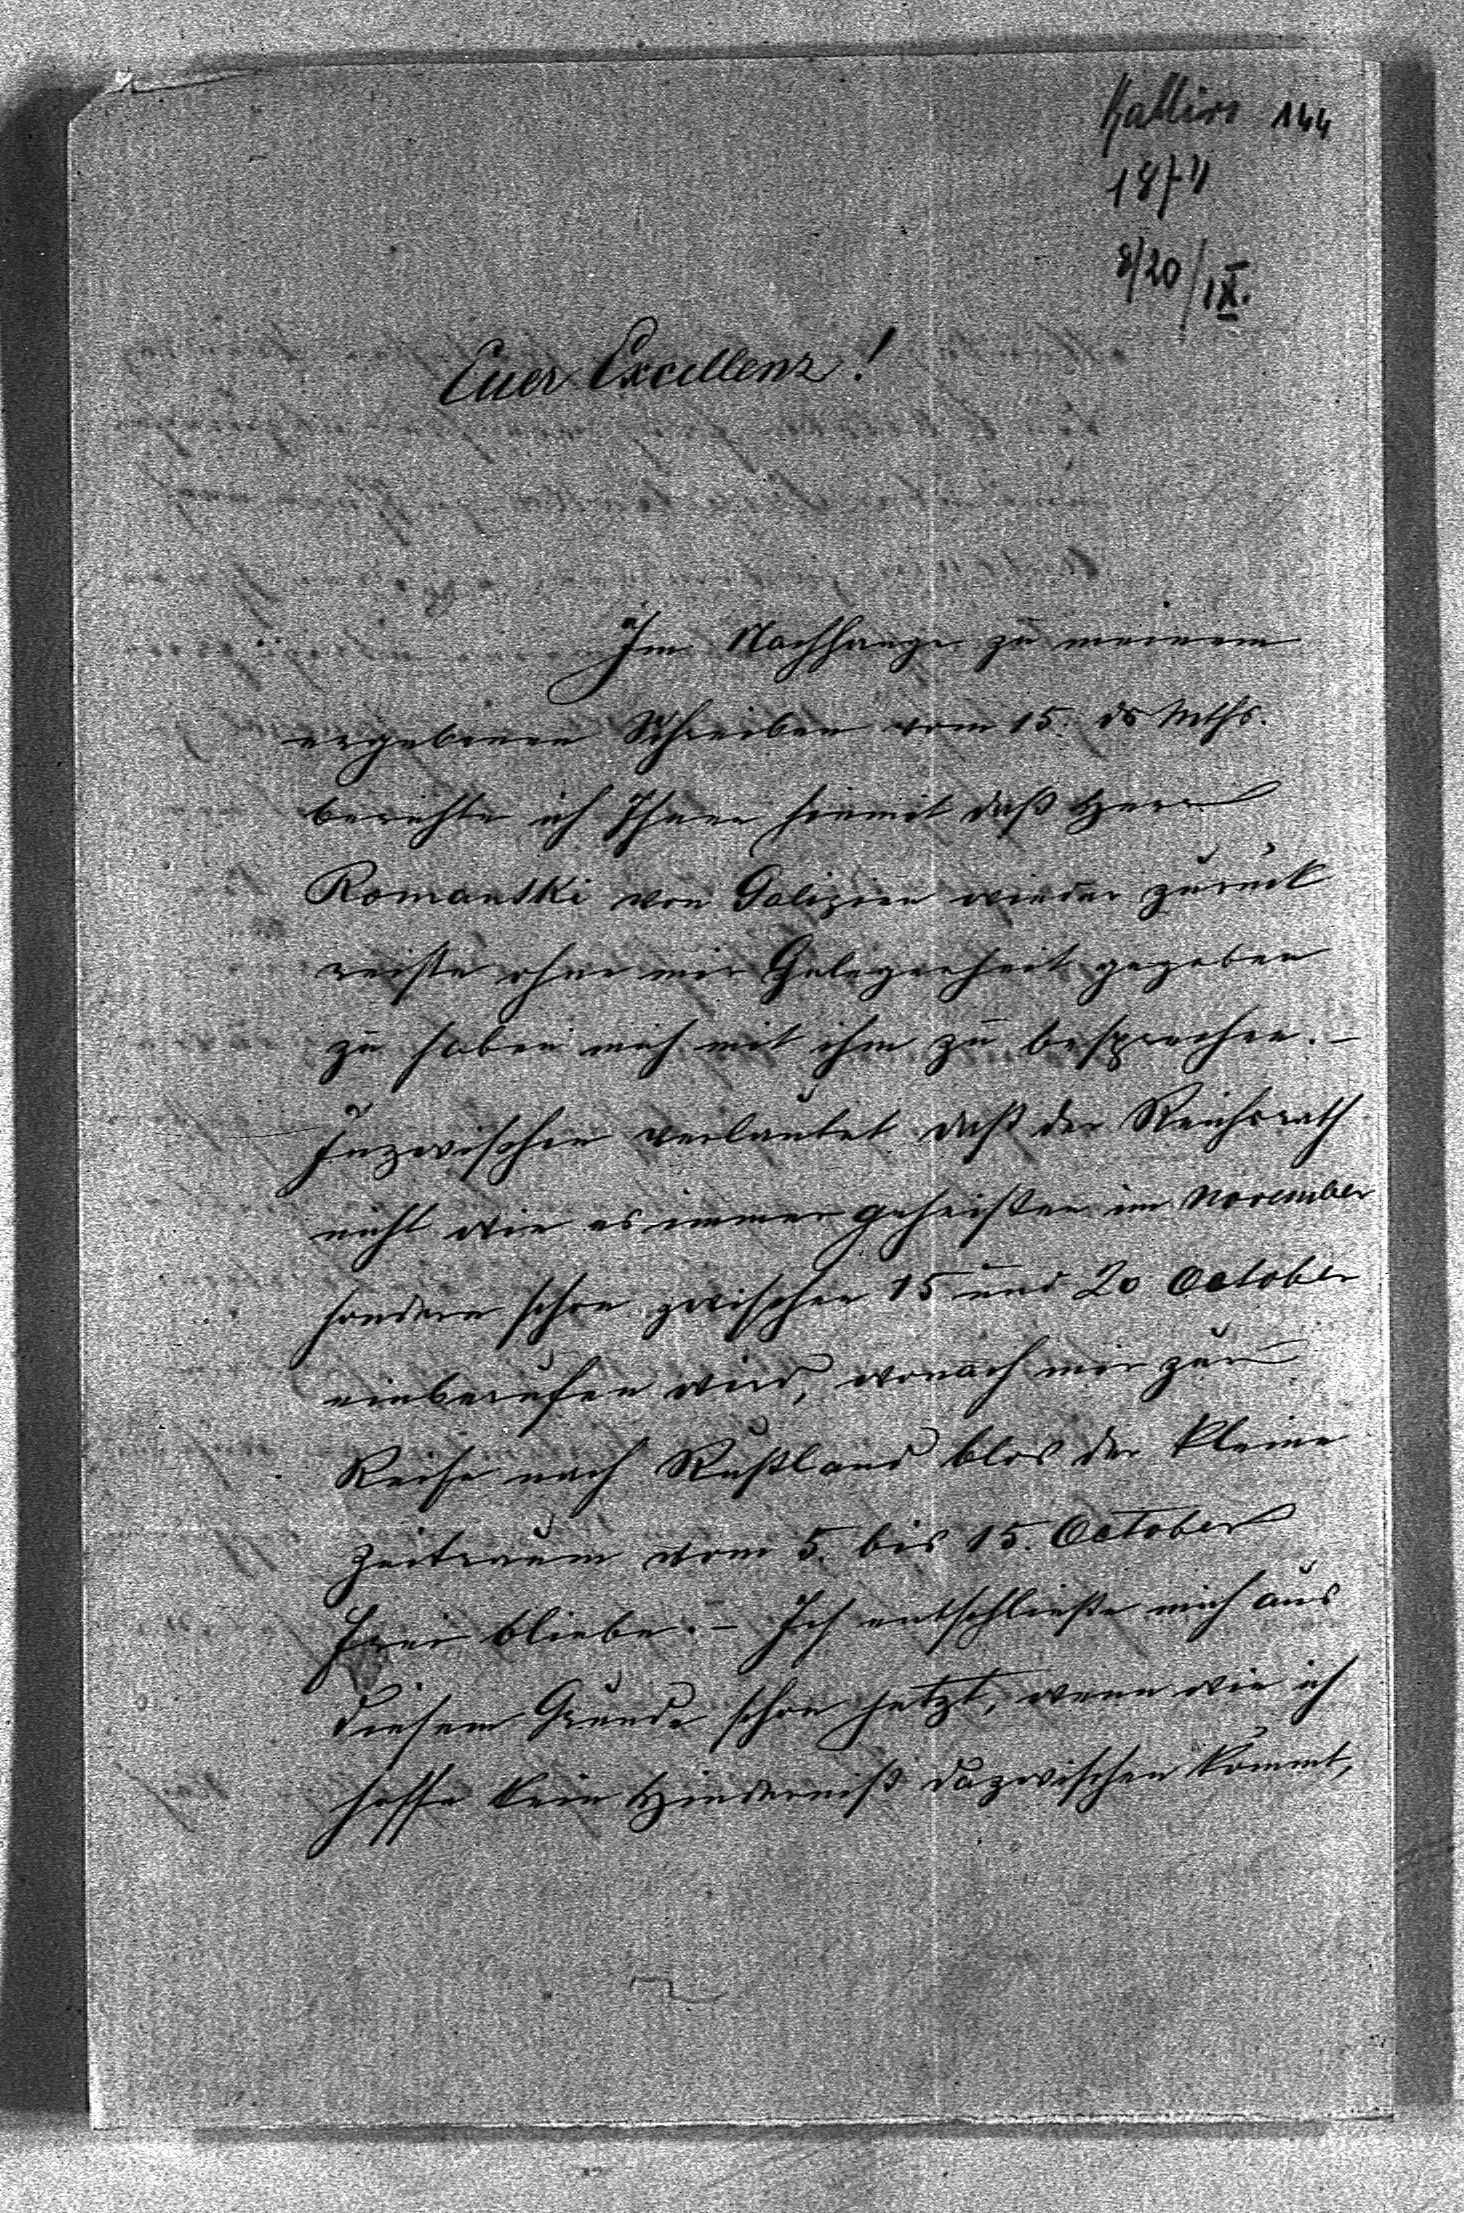 Kallir 144
1874
8/20/IX.
Euer Excellenz!
Im Nachhange zu meinem
ergebenen Schreiben vom 15. ds Mths.
berichte ich Ihnen hiemit daß Herr
Romanski von Galizien wieder zurück
reiste ohne mir Gelegenheit gegeben
zu haben mich mit ihm zu besprechen. –
Inzwischen verlautet daß der Reichsrath
nicht wie es immer geheißen im November
sondern schon zwischen 15 und 20 October
einberufen wird, wonach mir zur
Reise nach Rußland blos der kleine
Zeitraum vom 5. bis 15. October
frei bliebe. – Ich entschließe mich aus
diesem Grunde schon jetzt, wenn wie ich
hoffe kein Hinderniß dazwischen kommt,